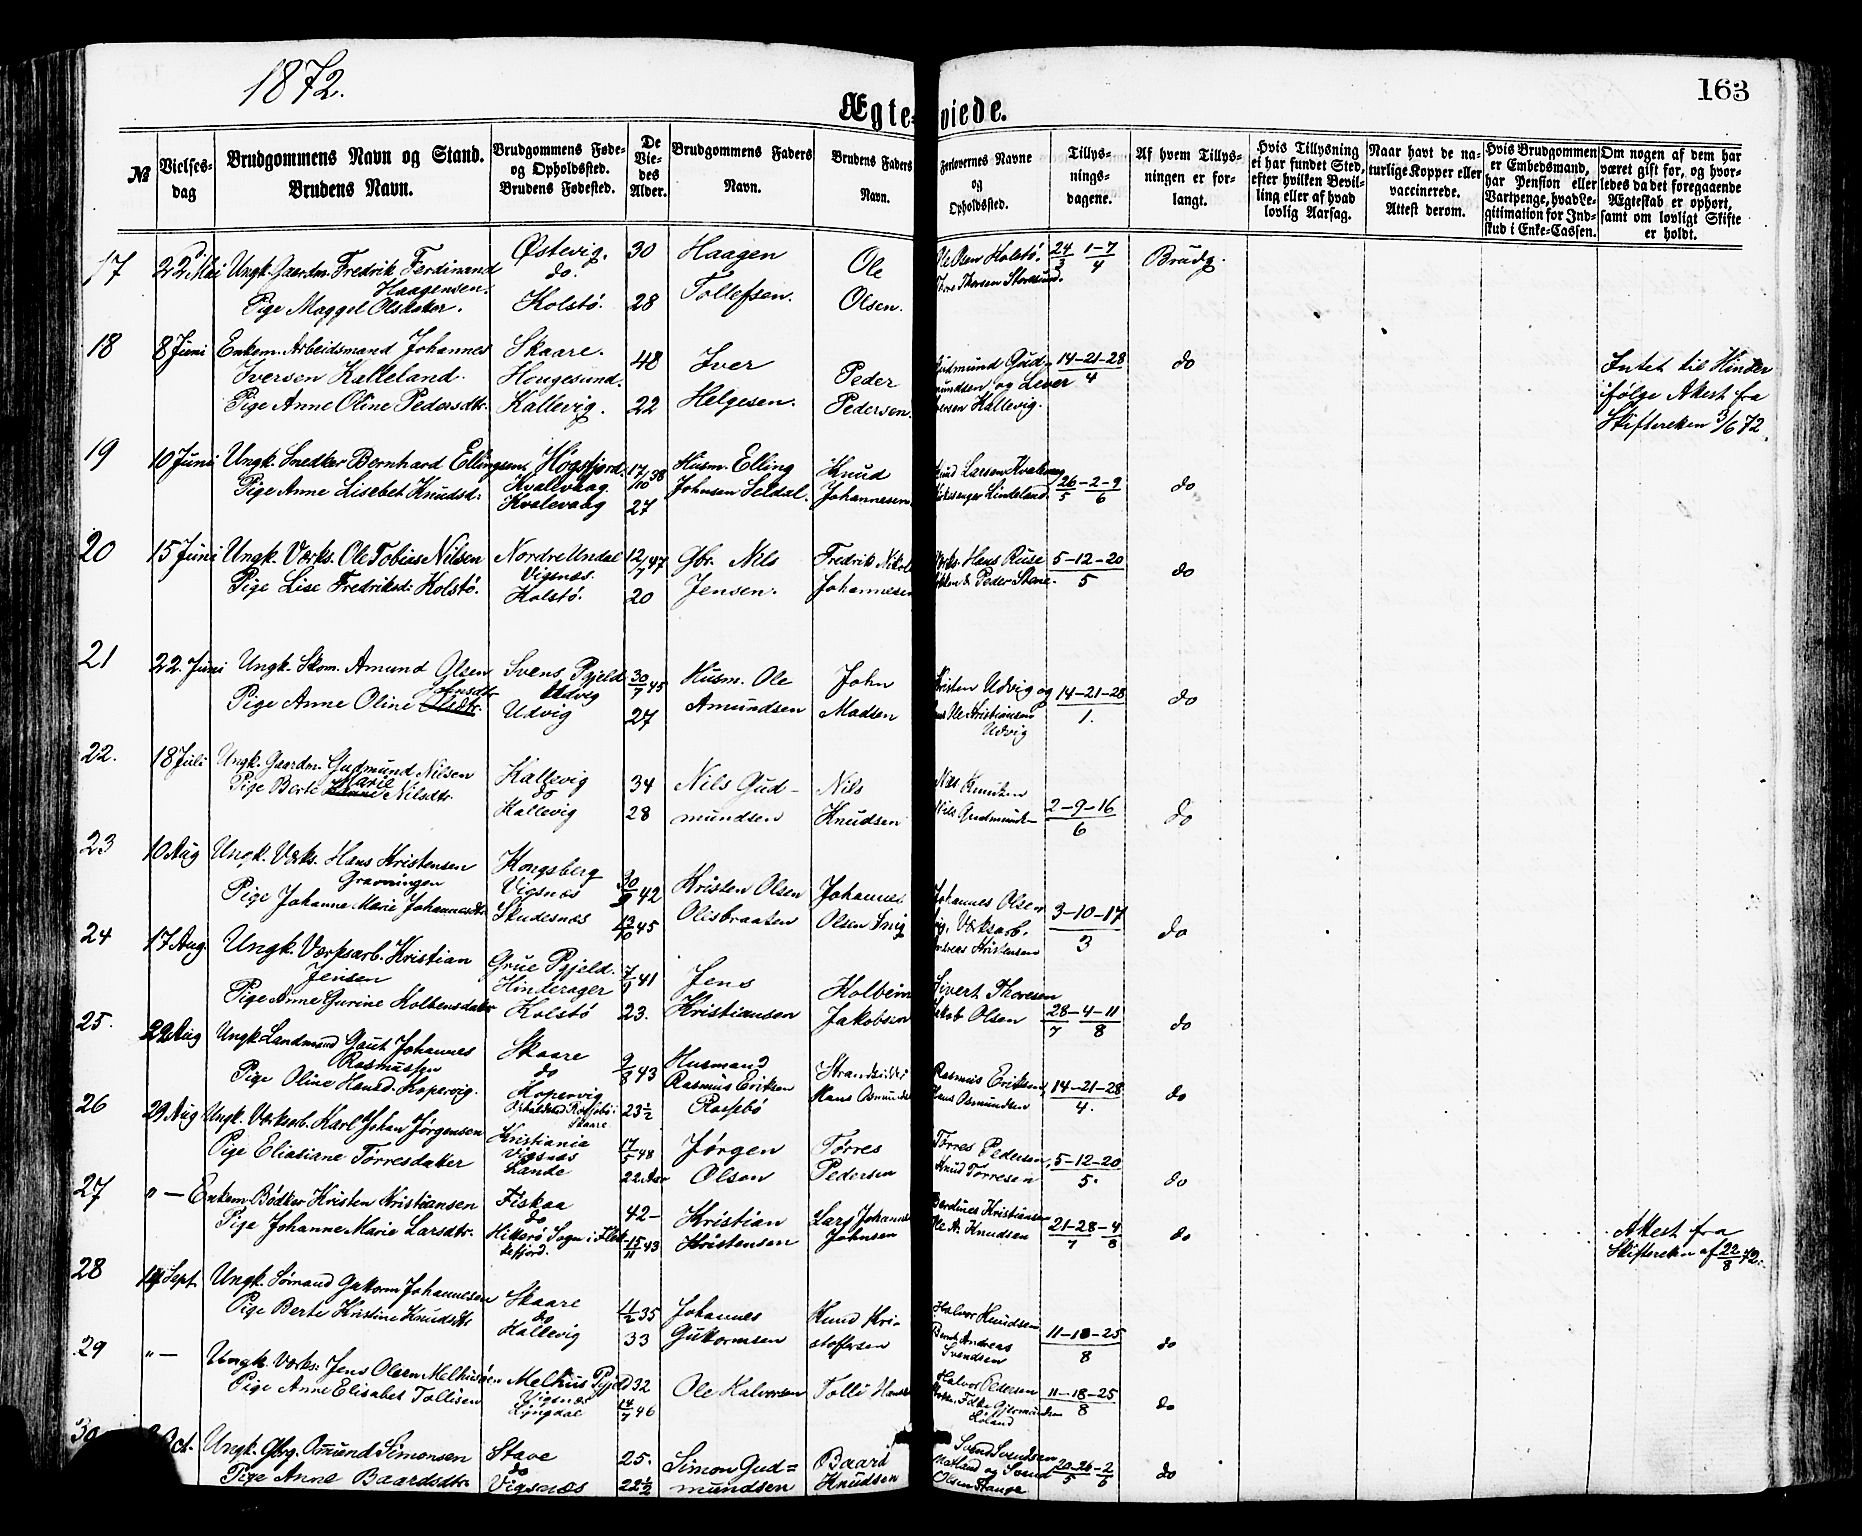 1872.
163
Ægte-viede.
№
Vielses-dag
Brudgommens Navn og Stand.
Brudens Navn.
Brudgommens Føde- og Opholdssted.
Brudens Fødested.
De Viedes Alder.
Brudgommens Faders Navn.
Brudens Faders Navn.
Forlovernes Navne og Opholdssted.
Tillysningsdagene.
Af hvem Tillysningen er forlangt.
Hvis Tillysning ei har fundet Sted, efter hvilken Bevilling eller af hvad lovlig Aarsag.
Naar havt de naturlige Kopper eller vaccinerede. Attest derom.
Hvis Brudgommen er Embedsmand, har Pension eller Vartpenge, hvad Legitimation for Indskud i Enke-Cassen.
Om nogen af dem har været gift for, og hvorledes da det foregaaende Ægteskab er ophørt, samt om lovligt Skifte er holdt.
17 22 Mai Ungk. Gaardm. Fredrik Ferdinand Haagensen. Østevig. do. 30 Haagen Tollefsen. Ole Olsen. Ole Olsen Holstø. 24/3 1-7/4 Brudg.
Pige Maggel Olsdater. Kolstø. 28 Tore Thorsen Storesund.
18 8 Juni Enkem. Arbeidsmand Johannes Skaare. 48 Iver Peder Gudmund Gud- 14-21-28/4 do Intet til Hinder
Iversen Kalleland. Hougesund. Helgesen. Pedersen. mundsen og Iver ifølge Akest fra
Pige Anne Oline Pedersdtr. Kallevig. 22 Iversen Kallevig. Skifteretten 3/6 72.
19 10 Juni Ungk. Snedker Bernhard Ellingsen Høgsfjord. 17/10 38 Husm. Elling Knud Knud Larsen Kvalevaag 26/5-2-9/6 do
Pige Anne Lisebet Knudsd. Kvalevaag Johnsen Seldal. Johannesen. Kirkesanger Lindeland.
Kvalevaag 27
20 15 Juni Ungk. Værks. Ole Tobias Nilsen Nordre Undal 12/7 47 Gbr. Nils Fredrik Nikol Værks. Hans Ruse 5-12-20/5 do
Pige Lise Fredriksd. Kolstø. Vigsnæs. Jensen. Johannesen & Peder Stene.
Kolstø. 20
21 22 Juni Ungk. Skom. Amund Olsen Svens Pgjeld 30/7 45 Husm. Ole John Kristen Udvig og 14-21-28/1. do
Pige Anne Oline Olsdtr. Johnsdtr. Udvig Amundsen Madsen Ole Kristiansen
Udvig 27 Udvig
22. 18 Juli Ungk. Gaardm. Gudmund Nilsen Kallevig 34 Nils Gud- Nils Nils Knudsen 2-9-16/6 do
Pige Berte Marie Nilsdtr. do mundsen Knudsen Nils Gudmund-
Kallevig 28
23 10 Aug Ungk. Værks. Hans Kristensen Kongsberg 30/9 42 Kristen Olsen Johannes Johannes Olsen 3-10-17/3 do
Gravningen Vigsnæs Olisbraaten Olsen Snig Snig, Værksarb.
Pige Johanne Marie Johannesdtr. Skudesnæs 13/10 45 Andreas Kristensen
24 17 Aug. Ungk. Værksarb. Kristian Grue Pgjeld. 7/9 41 Jens Kolbein Sivert Thoresen 28/7-4-11/8 do
Jensen Hinderager Kristiansen Jakobsen Jakob Olsen
Pige Anne Gurine Kolbensdater Kolstø 23.
25. 22 Aug Ungk. Landmand Gaut Johannes Skaare 2/8 43 Husmand Strandsidder Rasmus Eriksen, 14-21-28/4. do
Rasmussen do Rasmus Eriksen Hans Osmundsen Hans Osmundsen
Pige Oline Hansd. Kopervig. Kopervig 23½ Rossebø
Opholdsted Rossebø: Skaare
26 29 Aug Ungk. Værksarb. Karl Johan Jørgensen Kristiania 17/5 48 Jørgen Tørres Tørres Pedersen, 5-12-20/5. do
Pige Eliasiane Tørresdater Vigsnæs Olsen Pedersen Knud Tørresen
Lande 22 Aar
27 " — Enkem. Bødker Kristen Kristiansen Fiskaa 42- Kristian Lars Johannes Berdines Kristiansen 21-28-4/7 8 do Akest fra
Pige Johanne Marie Larsdtr. do Kristensen Johnsen Ole A. Knudsen Skifteretten af 22/8 72.
Hitterø Sogn i Flekkefjord. 15/11 43
28 14 Sept. Ungk. Sømand Gutorm Johannesen Skaare 4/2 35 Johannes Knud Kri- Halvor Knudsen 11-18-25/8 do
Pige Berte Kristine Knudsdtr do Gutormsen stoffersen Bernt Andreas
Kallevig 33 Svendsen
29 " — Ungk. Værks. Jens Olsen Melhusøen Melhus Pgjeld 32 Ole Halvorsen Tolli Halvor Pedersen 11-18-25/8 do
Pige Anne Elisabet Tollisen Vigsnæs
Lyngdal 14/7 46 Løland
30 Oct. Ungk. Gbrg. Omund Simonsen Stave 25. Simon Gud= Baard Svend Svendsen 20-26-2/5 6 do
Pige Anne Baardsdtr. do mundsen Knudsen og Svend
Vigsnæs 22½ Olsen Stange